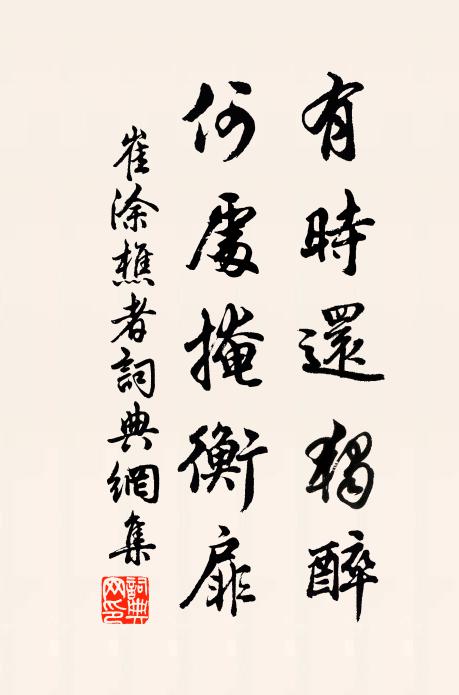 有時還獨醉
何處掩衡扉
崔涂樵者詞典網集
詞典网印